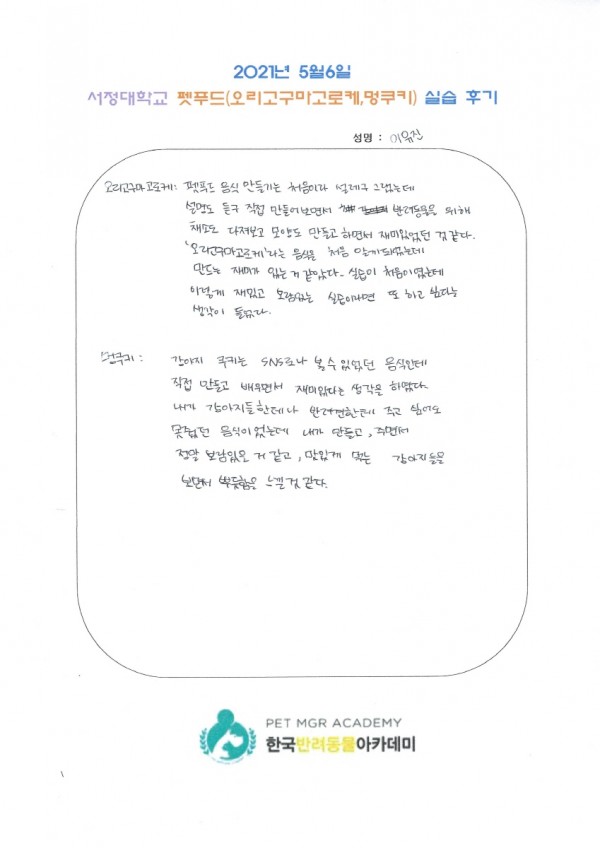 2021년 5월6일
서정대학교 펫푸드(오리고구마고로케,멍쿠키) 실습 후기
성명 :
오리고구마고로케 : 펫푸드 음식 만들기는 처음이라 설레구 그랬는데
설명도 듣구 직접 만들어보면서 반려동물을 위해
채소도 다져보고 모양도 만들고 하면서 재미있었던 것 같다.
'오리고구마고로케'라는 음식을 처음 알게되었는데
만드는 재미가 있는거 같았다. 실습이 처음이였는데
이렇게 재밌고 보람있는 실습이라면 또 하고 싶다는
생각이 들었다.
멍쿠키 : 강아지 쿠키는 SNS로나 볼수있었던 음식인데
직접 만들고 배우면서 재미있다는 생각을 하였다.
내가 강아지들한테나 반려견한테 주고 싶어도
못줬던 음식이었는데 내가 만들고, 주면서
정말 보람있을 거 같고, 맛있게 먹는 강아지들을
보면서 뿌듯함을 느낄 것 같다.
PET MGR ACADEMY
한국반려동물아카데미